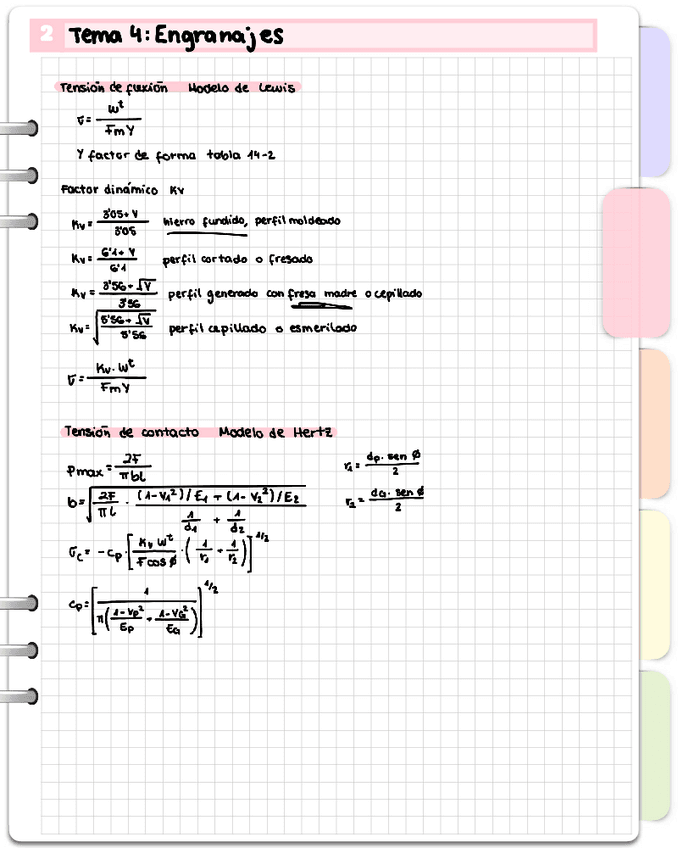 2 Tema 4: Engranajes
Tensión de flexión Modelo de Lewis
σ = W^t / (F m Y)
Y factor de forma tabla 14-2
Factor dinámico Kv
Kv = (3'05 + V) / 3'05 hierro fundido, perfil moldeado
Kv = (6'1 + V) / 6'1 perfil cortado o fresado
Kv = (3'56 + √V) / 3'56 perfil generado con fresa madre o cepillado
Kv = √((5'56 + √V) / 5'56) perfil cepillado o esmerilado
σ = Kv · W^t / (F m Y)
Tensión de contacto Modelo de Hertz
Pmax = 2F / (π b l) r1 = dp · sen ø / 2
b = √(2F / (π l) · ((1-V1²)/E1 + (1-V2²)/E2) / (1/d1 + 1/d2)) r2 = dG · sen ø / 2
σc = -Cp · [Kv W^t / (F cos ø) · (1/r1 + 1/r2)]^1/2
Cp = [1 / (π ((1-Vp²)/Ep + (1-VG²)/EG))]^1/2